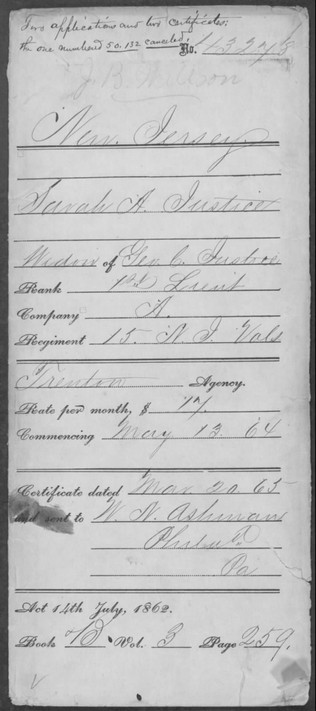 Two applications and two certificates:
the one numbered 50.132 canceled.
No. 13248
New Jersey
Sarah A. Justice
Widow of Geo. C. Justice
Rank 1st Lieut
Company A.
Regiment 15. N. J. Vols
Trenton Agency.
Rate per month, $ 17.
Commencing May 13. 64
Certificate dated Mar 20. 65
and sent to W. N. Ashman
Philad
Pa
Act 14th July, 1862.
Book Vol. 3 Page 259.